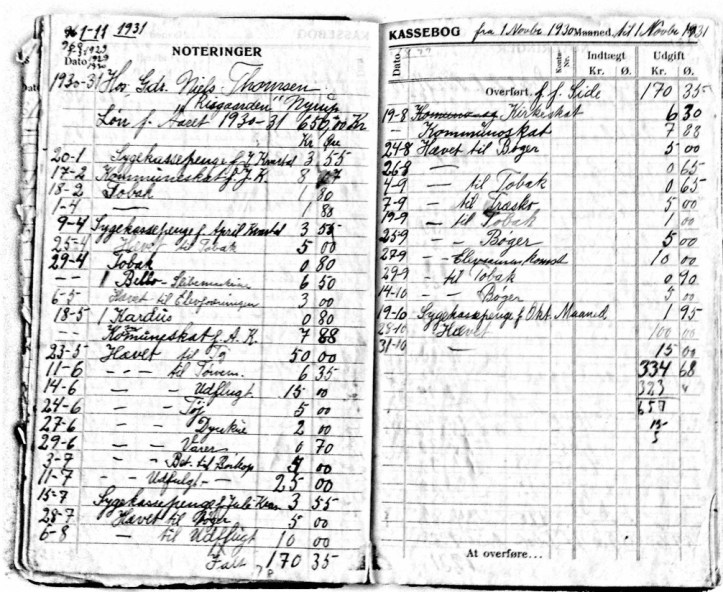 1-11 1931
NOTERINGER
Dato
1930-31 Hos Gdr. Niels Thomsen
"Risgaarden" Nyrup
Løn f. Aaret 1930-31 650,00 Kr
Kr Øre
20-1 Sygekassepenge f. J. Kvartal 3 55
17-2 Kommuneskat f. J. K. 8
18-2 Tobak 1 80
1-4 — 1 80
9-4 Sygekassepenge f. April Kvartal 3 55
25-4 Hævet til Tobak 5 00
29-4 Tobak 0 80
-- 1 6 50
6-5 Hævet til 3 00
18-5 1 Kardus 0 80
-- Kommuneskat f. A. K. 7 88
23-5 Hævet til Tøj 50 00
11-6 - - - til 6 35
14-6 — — Udflugt 15 00
24-6 — — Tøj 5 00
27-6 — — 2 00
29-6 — — Varer 0 70
3-7 - - til 5 00
11-7 - - Udflugt - 25 00
15-7 Sygekassepenge f. Juli Kvar. 3 55
28-7 Hævet til Bøger 5 00
6-8 — til Udflugt 10 00
Ialt 170 35
KASSEBOG fra 1 Novbr 1930 Maaned til 1 Novbr 1931
Dato Konto Nr. Indtægt Udgift
Kr. Ø. Kr. Ø.
Overført. f. f. Side 170 35
19-8 Kirkeskat 6 30
— Kommunoskat 7 88
24-8 Hævet til Bøger 5 00
26-8 — 0 65
4-9 — til Tobak 0 65
7-9 — til Træsko 5 00
19-9 — til Tobak 1 00
25-9 — — Bøger 5 00
27-9 — — 10 00
29-9 — til Tobak 0 90
14-10 — — Bøger 5 00
19-10 Sygekassepenge f. Okt. Maaned. 1 95
28-10 Hævet 100 00
31-10 — 15 00
334 68
323
657
At overføre...